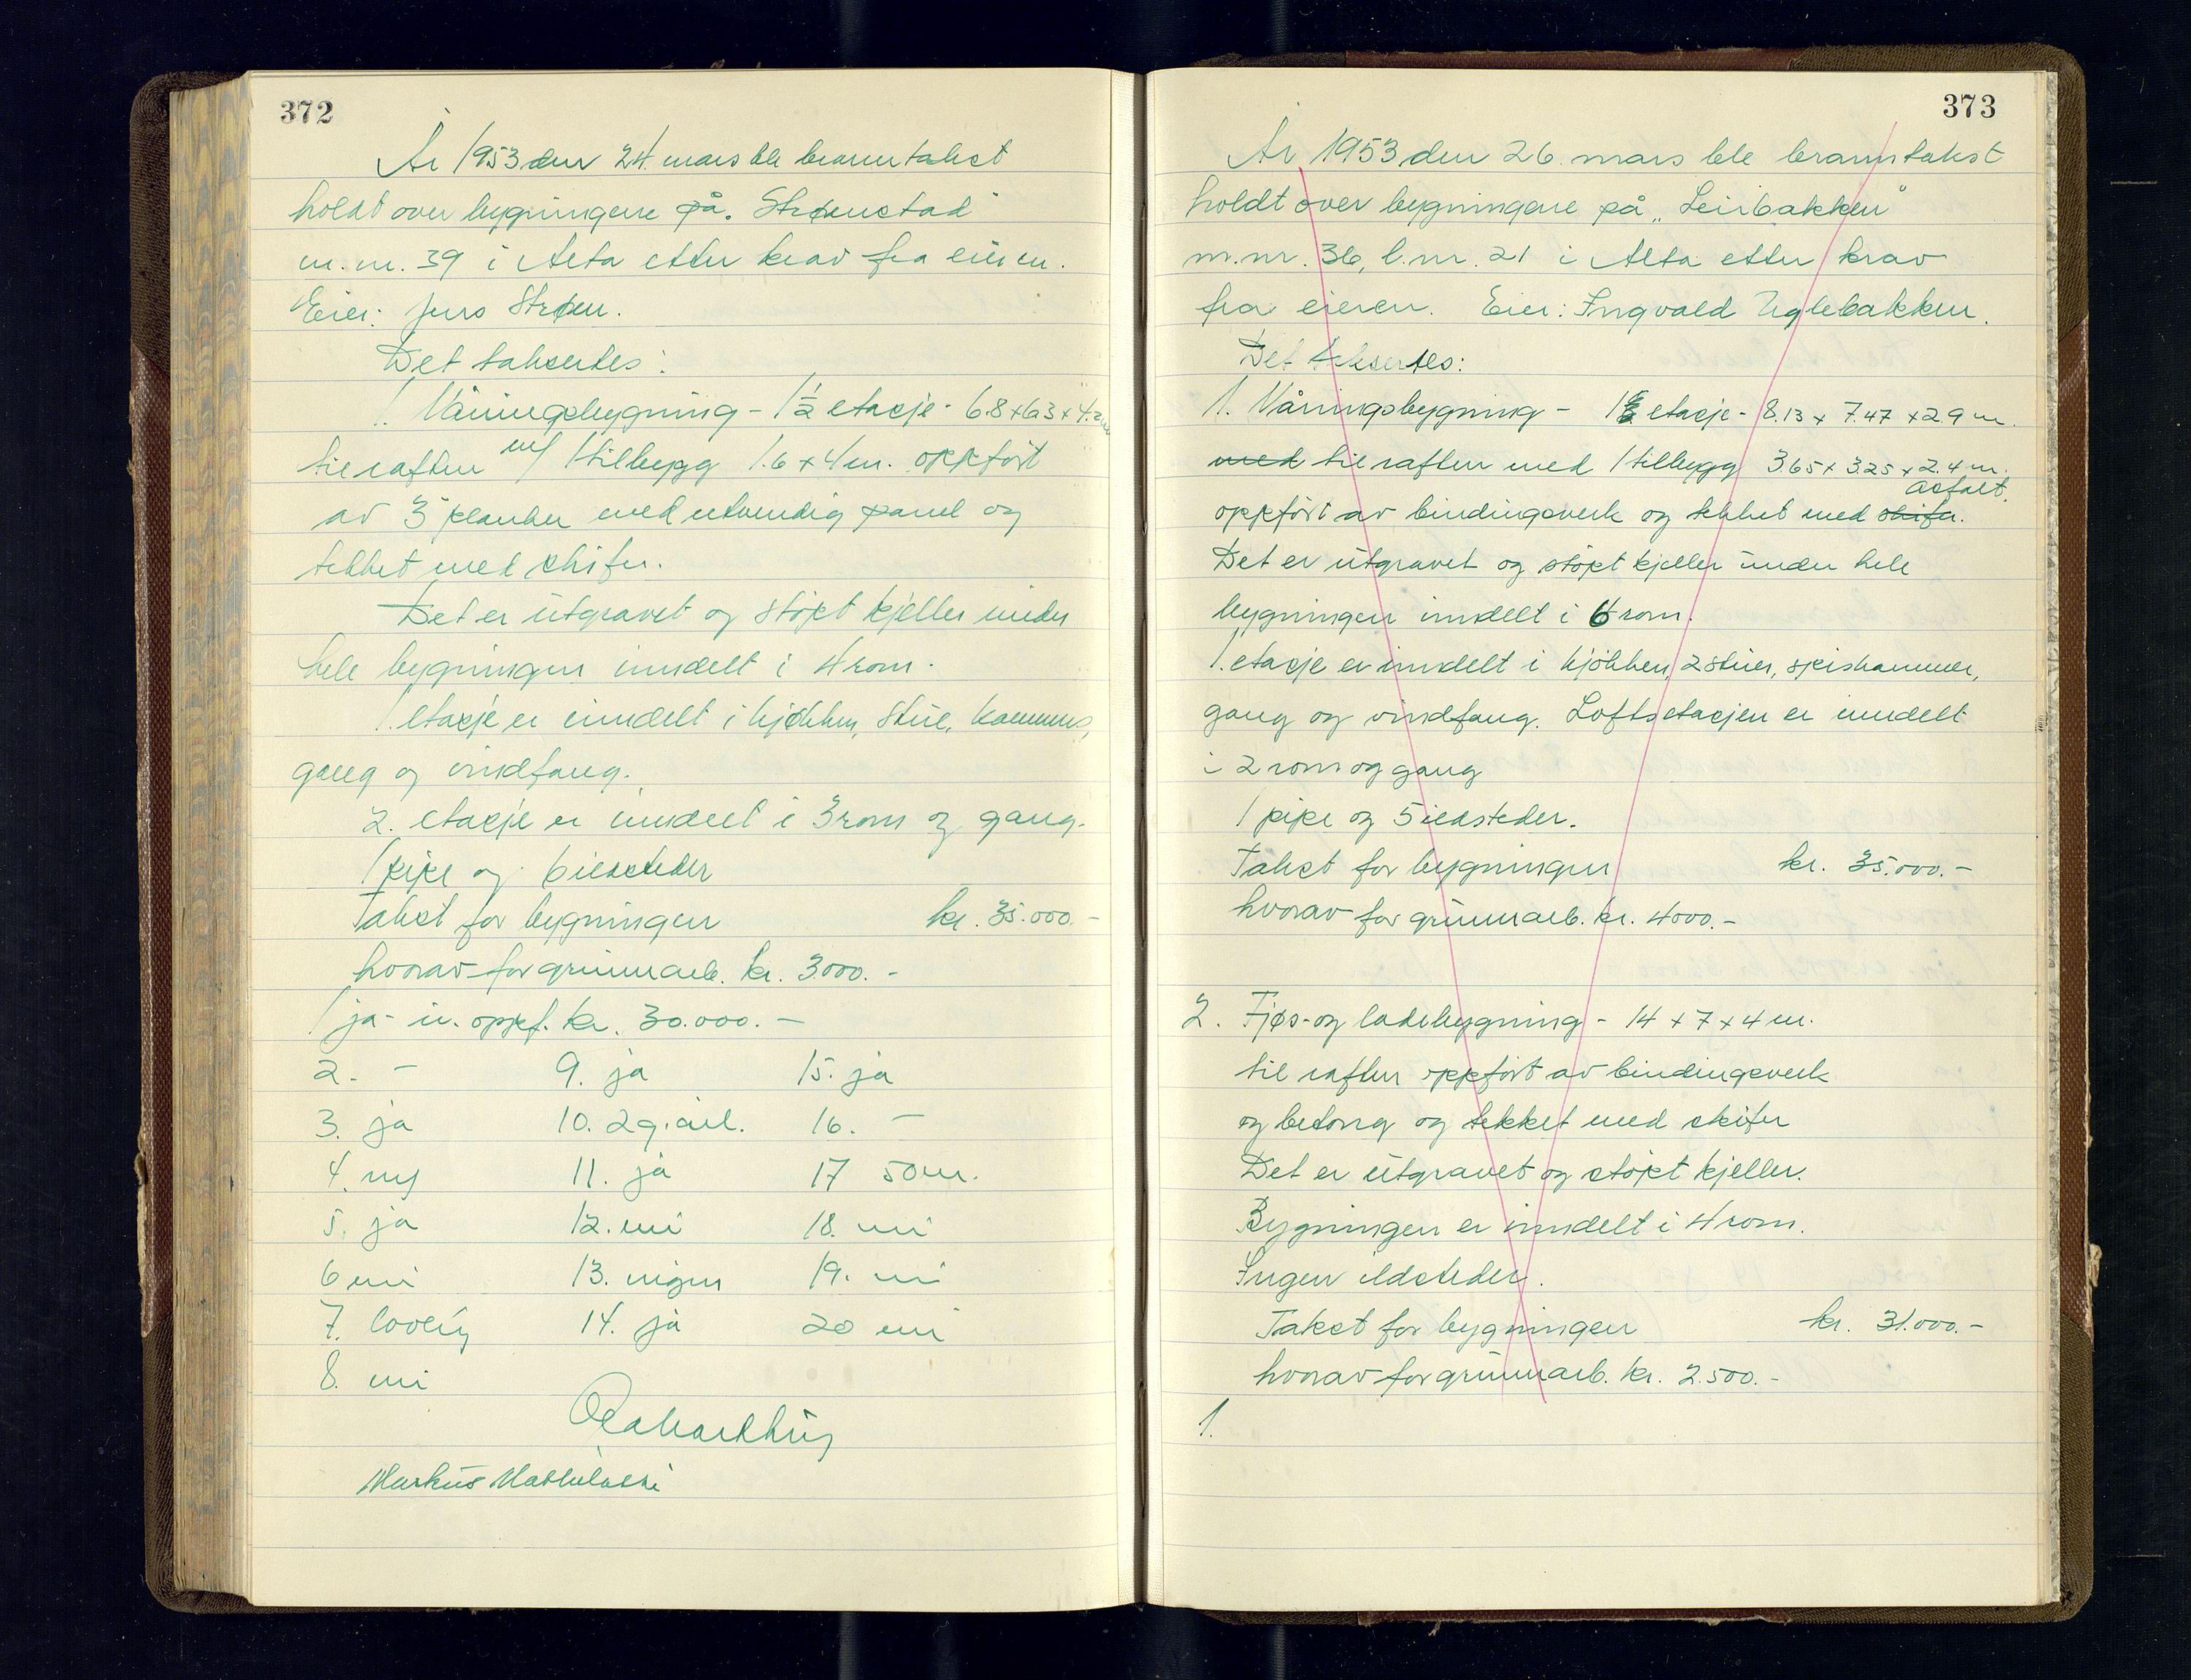 372
År 1953 den 24. mars ble branntakst
holdt over bygningene på "Strømstad"
m.nr. 39 i Alta etter krav fra eieren.
Eier: Jens Strøm.
Det taksertes:
1. Våningsbygning - 1½ etasje - 6.8 x 6.3 x 4.2 m
til raften m/ 1 tilbygg 1.6 x 4 m. oppført
av 3" planker med utvendig panel og
tekket med skifer.
Det er utgravet og støpt kjeller under
hele bygningen inndelt i 4 rom.
1. etasje er inndelt i kjøkken, stue, kammers,
gang og vindfang.
2. etasje er inndelt i 3 rom og gang.
1 pipe og 6 ildsteder
Takst for bygningen kr. 35.000.-
hvorav for grunnarb. kr. 3.000.-
1 ja - u. oppf. kr. 30.000.-
2. - 9. ja 15. ja
3. ja 10. 2 g. årl. 16. -
4. ny 11. ja 17 50 m.
5. ja 12. nei 18. nei
6 nei 13. ingen 19. nei
7. lovlig 14. ja 20 nei
8. nei
Markus
373
År 1953 den 26. mars ble branntakst
holdt over bygningene på "Leirbakken"
m.nr. 36, b.nr. 21 i Alta etter krav
fra eieren. Eier: Ingvald Uglebakken.
Det taksertes:
1. Våningsbygning - 1½ etasje - 8.13 x 7.47 x 2.9 m.
med til raften med 1 tilbygg 3.65 x 3.25 x 2.4 m.
asfalt.
oppført av bindingsverk og tekket med skifer.
Det er utgravet og støpt kjeller under hele
bygningen inndelt i 6 rom.
1. etasje er inndelt i kjøkken, 2 stuer, spiskammer,
gang og vindfang. Loftsetasjen er inndelt
i 2 rom og gang
1 pipe og 5 ildsteder.
Takst for bygningen kr. 35.000.-
hvorav for grunnarb. kr. 4000.-
2. Fjøs- og ladebygning - 14 x 7 x 4 m.
til raften oppført av bindingsverk
og betong og tekket med skifer
Det er utgravet og støpt kjeller.
Bygningen er inndelt i 4 rom.
Ingen ildsteder.
Takst for bygningen kr. 31.000.-
hvorav for grunnarb. kr. 2.500.-
1.